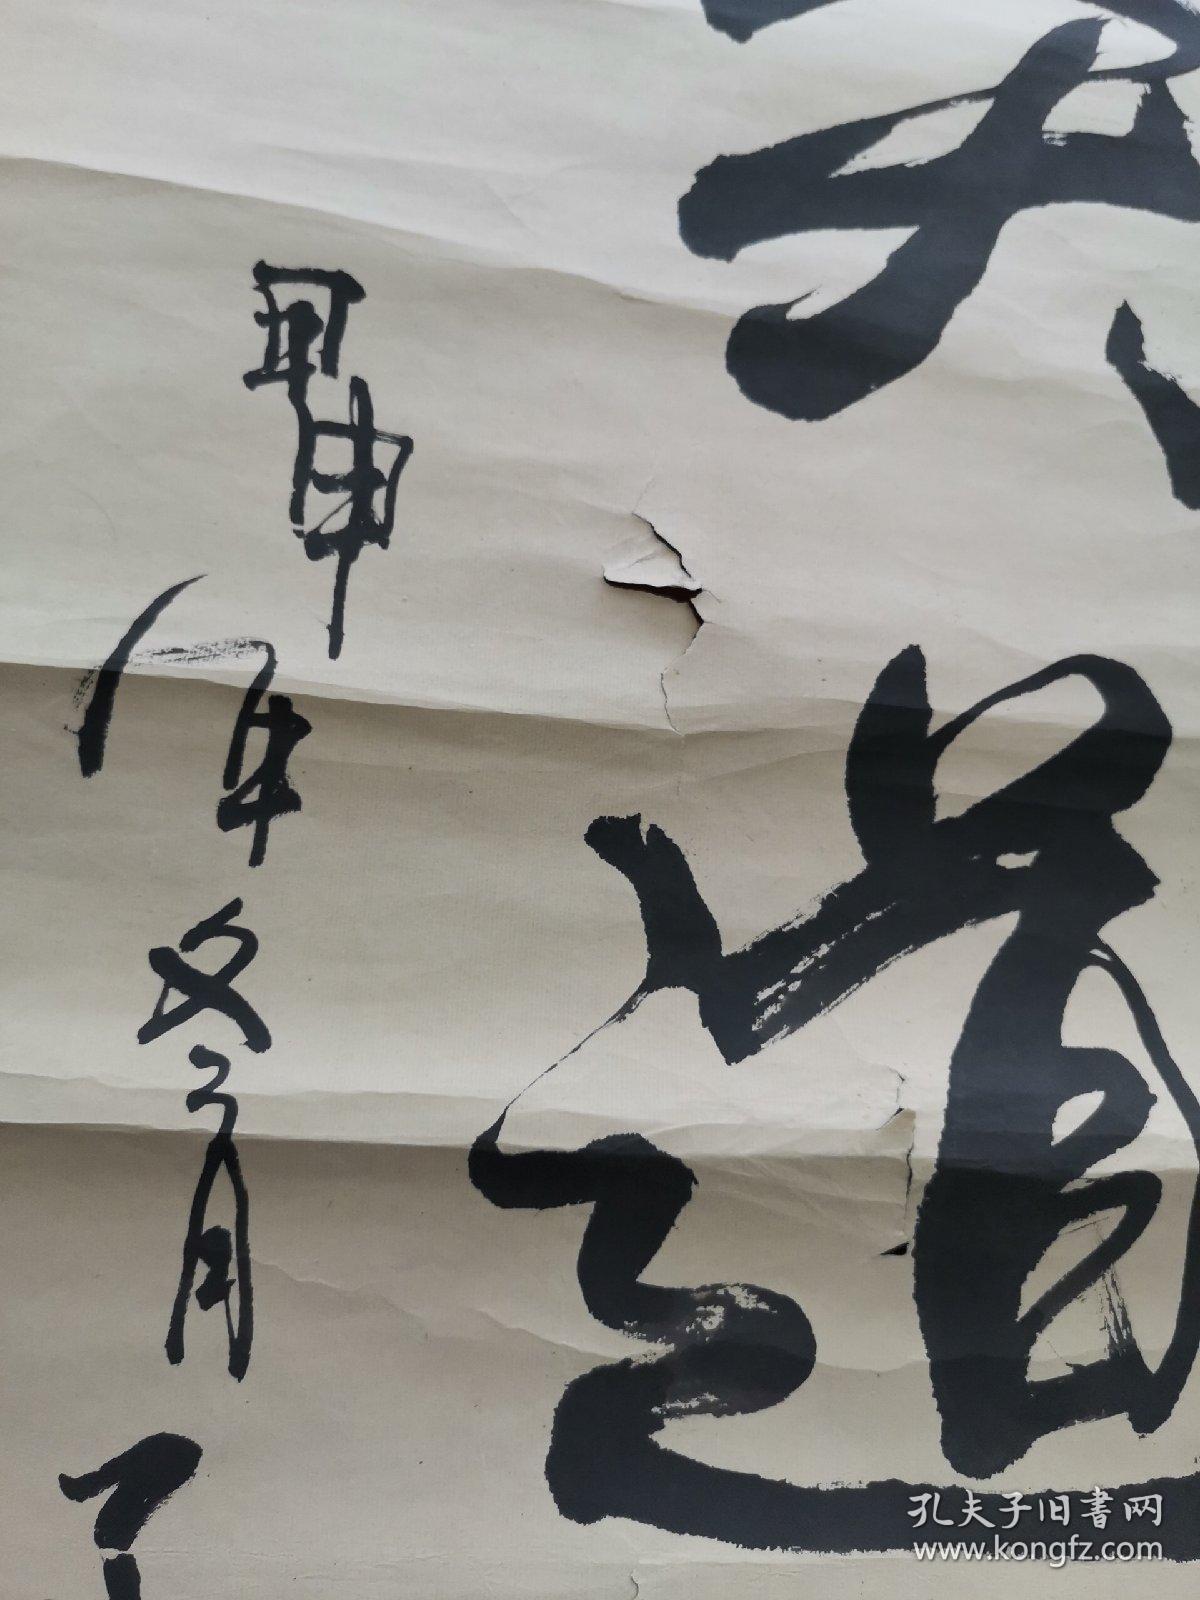 道
甲申
年冬月
孔夫子旧書网
www.kongfz.com